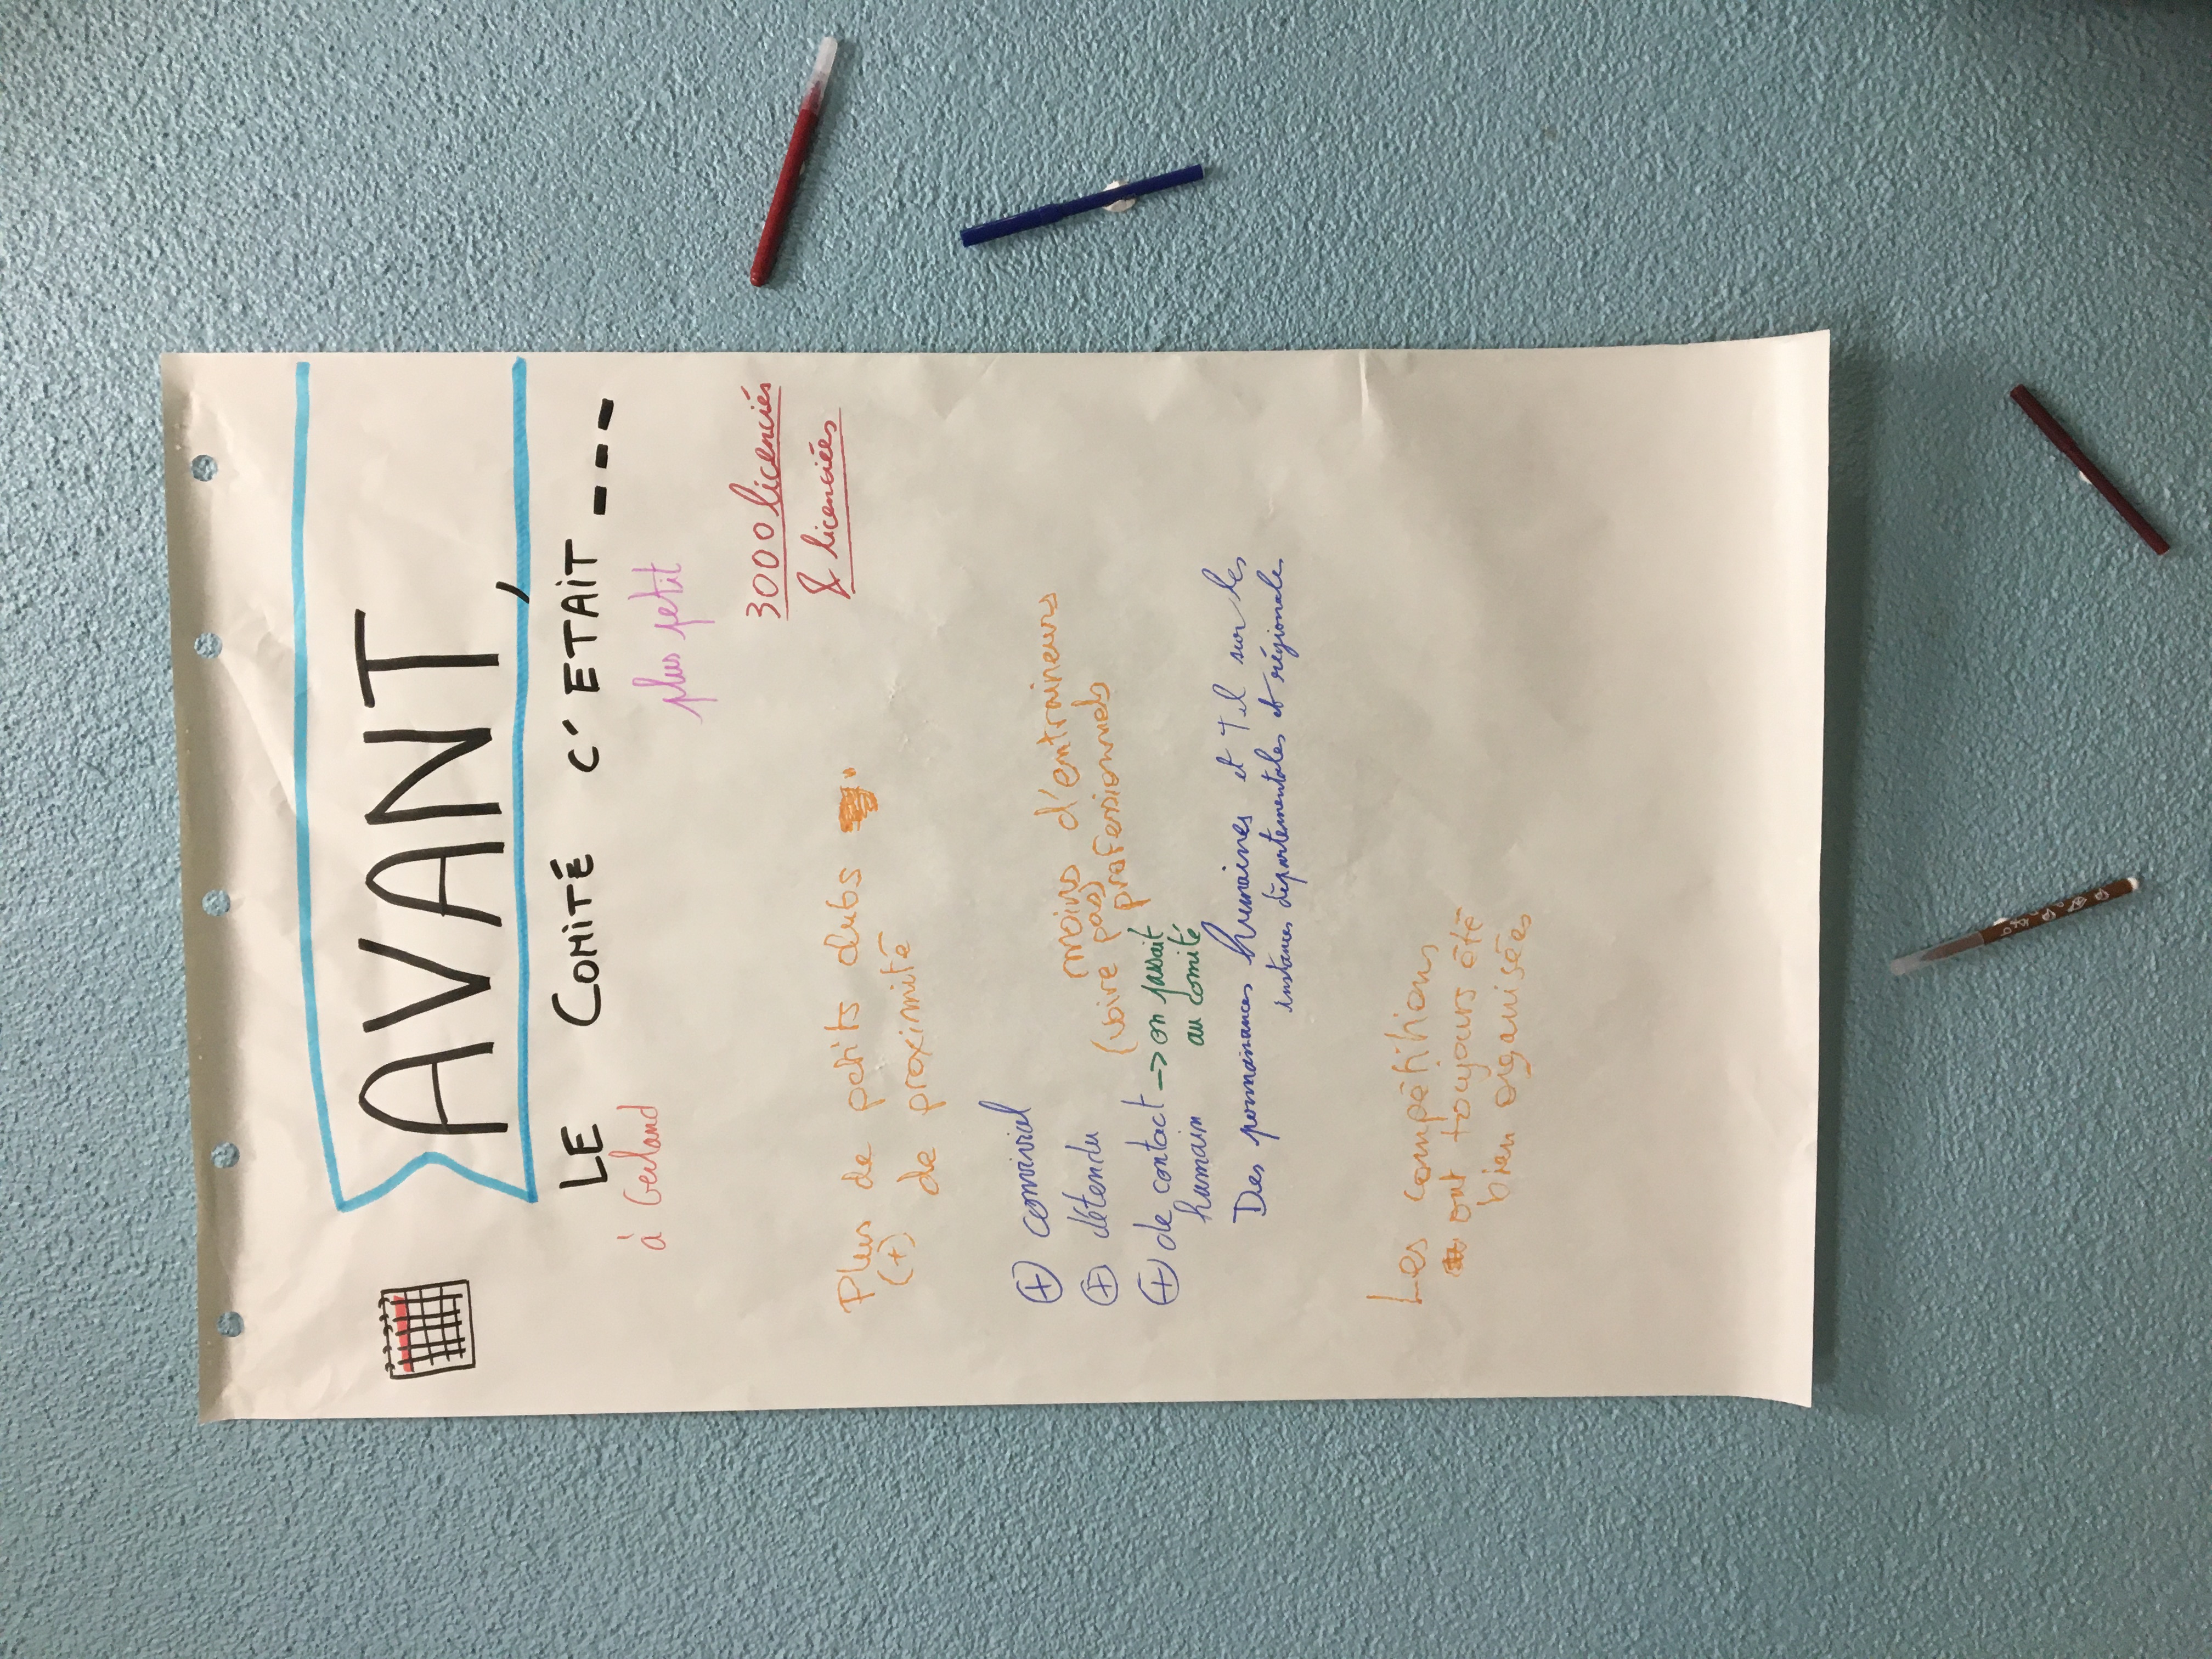 AVANT,
LE COMITÉ C'ETAIT ---
à Gerland
plus petit
3000 licenciés
& licenciées
Plus de petits clubs
(+) de proximité
+ convivial
+ détendu
+ de contact
humain
→ on passait
au comité
moins d'entraineurs
(voire pas) professionnels
Des permanances humaines et Tel sur les
instances départementales et régionales
Les compétitions
ont toujours été
bien organisées